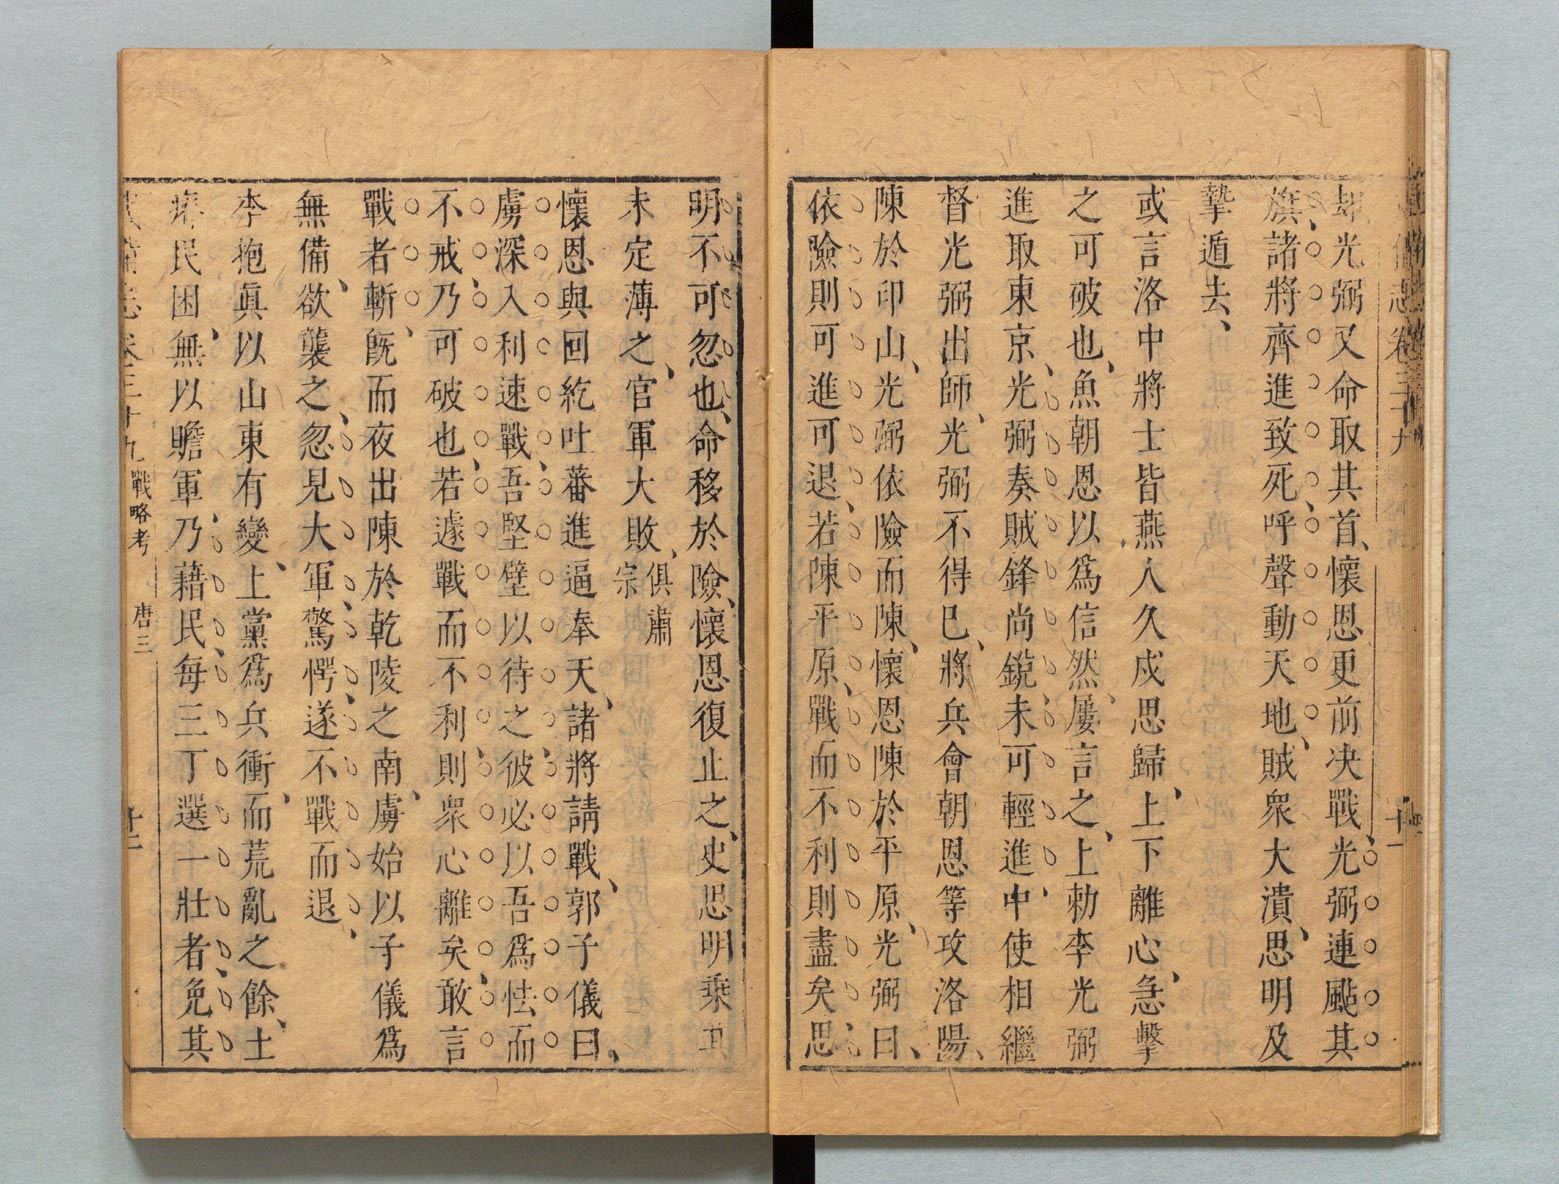 備志卷三十九
十一
却光弼又命取其首懷恩更前决戰光弼連颭其
旗諸將齊進致死呼聲動天地賊衆大潰思明及
摯遁去
或言洛中將士皆燕人久戍思歸上下離心急擊
之可破也魚朝恩以爲信然屢言之上勅李光弼
進取東京光弼奏賊鋒尚銳未可輕進中使相繼
督光弼出師光弼不得已將兵會朝恩等攻洛陽
陳於印山光弼依險而陳懷恩陳於平原光弼曰
依險則可進可退若陳平原戰而不利則盡矣思
明不可忽也命移於險懷恩復止之史思明乗其
未定薄之官軍大敗俱肅宗
懷恩與回紇吐蕃進逼奉天諸將請戰郭子儀曰
虜深入利速戰吾堅壁以待之彼必以吾爲怯而
不戒乃可破也若遽戰而不利則衆心離矣敢言
戰者斬旣而夜出陳於乾陵之南虜始以子儀爲
無備欲襲之忽見大軍驚愕遂不戰而退
李抱眞以山東有變上黨爲兵衝而荒亂之餘土
瘠民困無以贍軍乃藉民每三丁選一壯者免其
武備志卷三十九 戰略考 唐三 十二